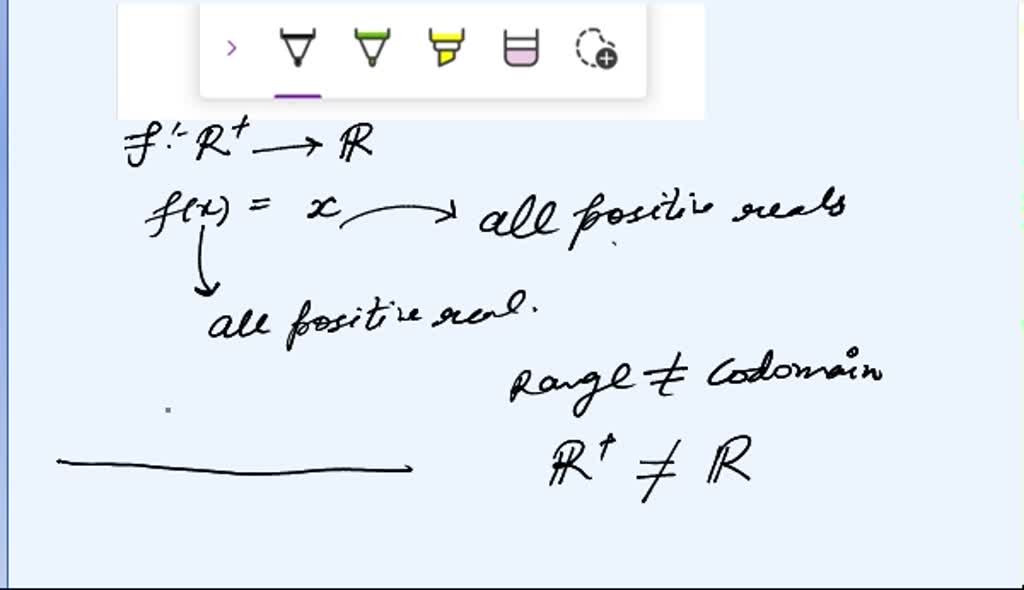 f:- R⁺ → ℝ
f(x) = x → all positive reals
all positive real.
Range ≠ Codomain
ℝ⁺ ≠ ℝ